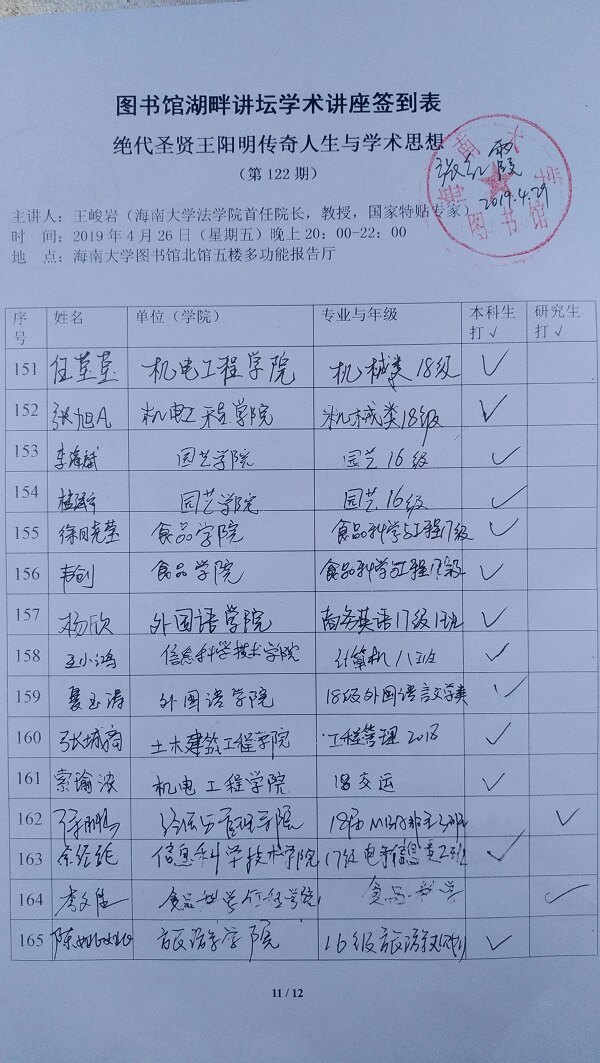 图书馆湖畔讲坛学术讲座签到表
绝代圣贤王阳明传奇人生与学术思想
（第 122 期）
2019.4.29
海南大学
图书馆
主讲人：王峻岩（海南大学法学院首任院长，教授，国家特贴专家）
时　间：2019 年 4 月 26 日（星期五）晚上 20：00-22：00
地　点：海南大学图书馆北馆五楼多功能报告厅
序号 姓名 单位（学院） 专业与年级 本科生打√ 研究生打√
151 任莹莹 机电工程学院 机械类 18级 √
152 机电工程学院 机械类18级 √
153 园艺学院 园艺16级 √
154 园艺学院 园艺16级 √
155 食品学院 食品科学与工程17级 √
156 韦创 食品学院 食品科学与工程17级 √
157 杨欣 外国语学院 商务英语17级1班 √
158 王小鸿 信息科学技术学院 计算机 √
159 夏玉涛 外国语学院 18级外国语言文学类 √
160 土木建筑工程学院 工程管理 2018 √
161 机电工程学院 18交运 √
162 经济与管理学院 √
163 信息科学技术学院 17级电子信息类2班 √
164 食品科学 √
165 旅游学院 16级旅游 √
11 / 12